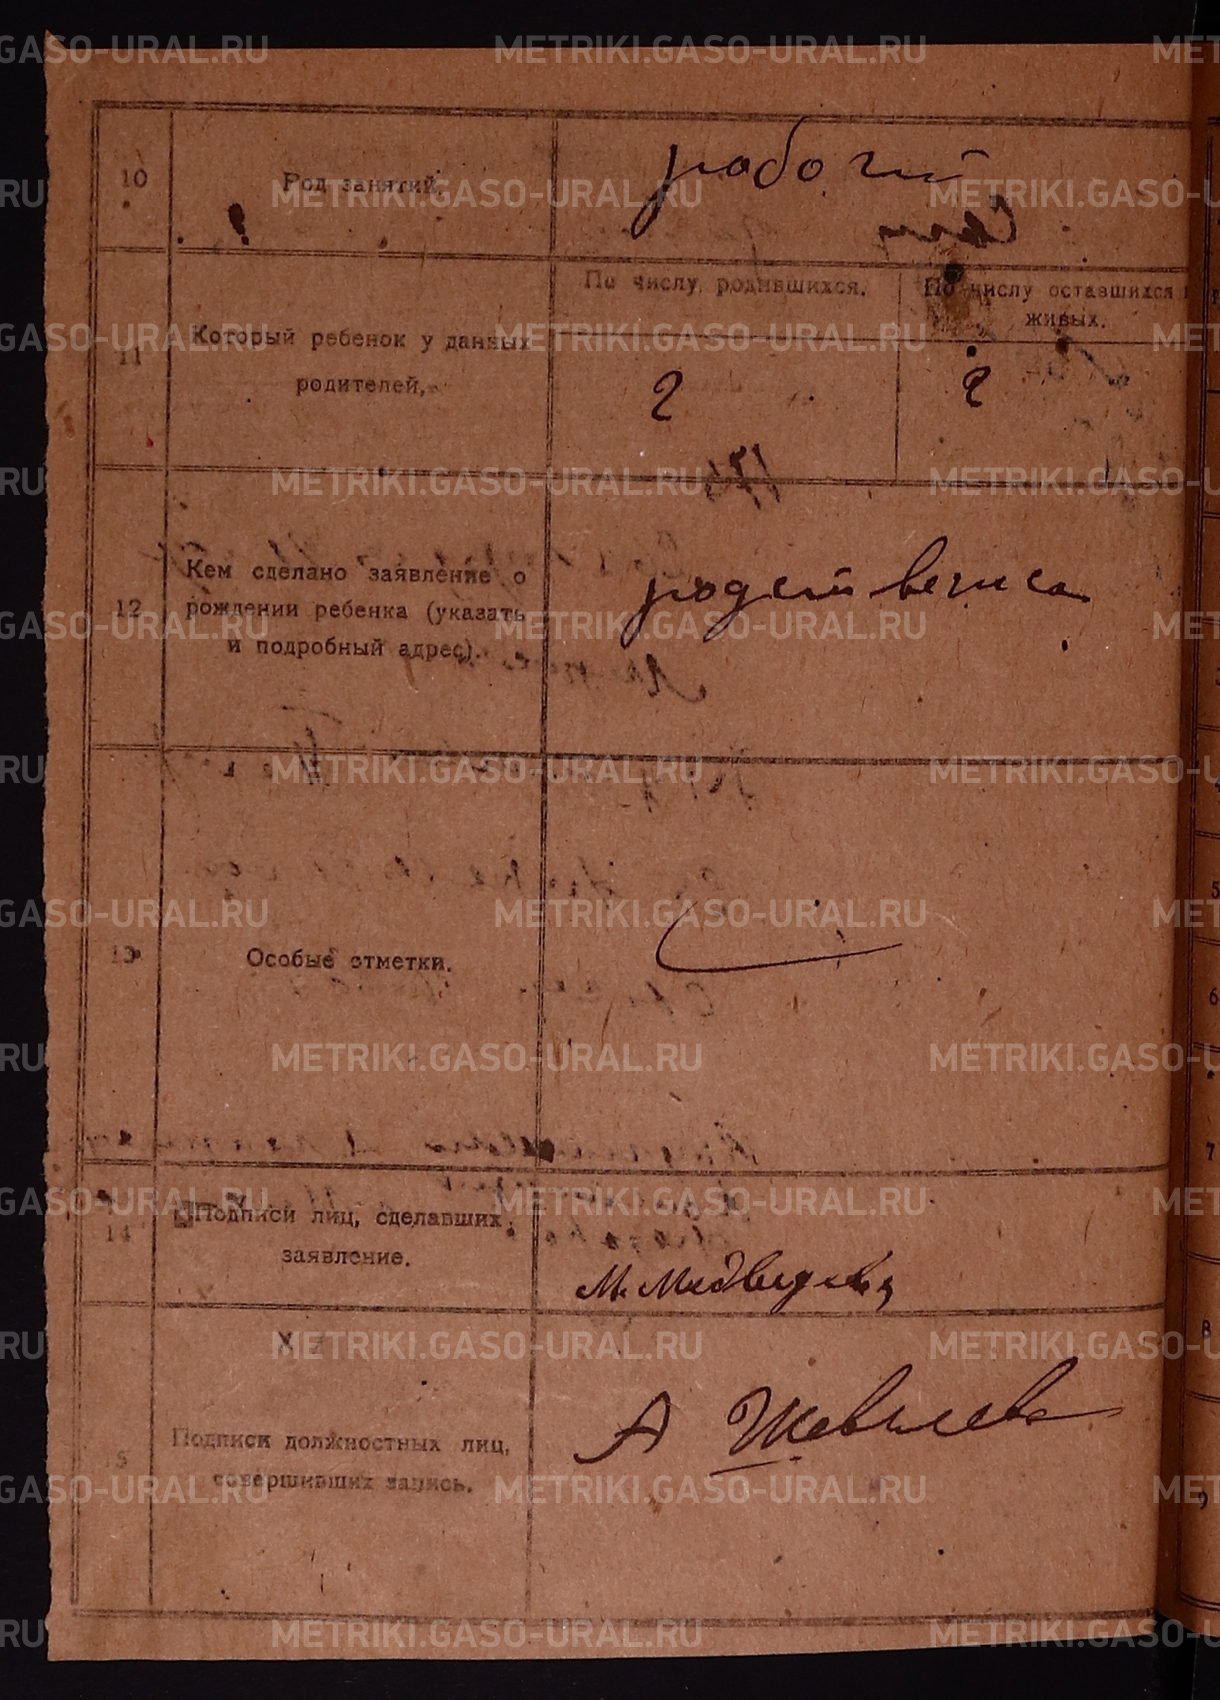 10
Род занятий.
рабочий
11
Который ребенок у данных
родителей.
По числу родившихся.
По числу оставшихся
живых.
2
2
12
Кем сделано заявление о
рождении ребенка (указать
и подробный адрес).
родственица
13
Особые отметки.
14
Подписи лиц, сделавших
заявление.
М. Медведева
15
Подписи должностных лиц,
совершивших запись.
А Шевелева
5
6
7
8
9
METRIKI.GASO-URAL.RU